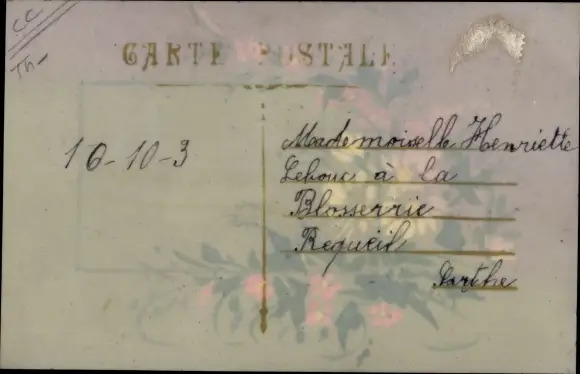 CC
Th-
CARTE POSTALE
10-10-3
Mademoiselle Henriette
Lehouc à la
Blosserrie
Requeil
Sarthe